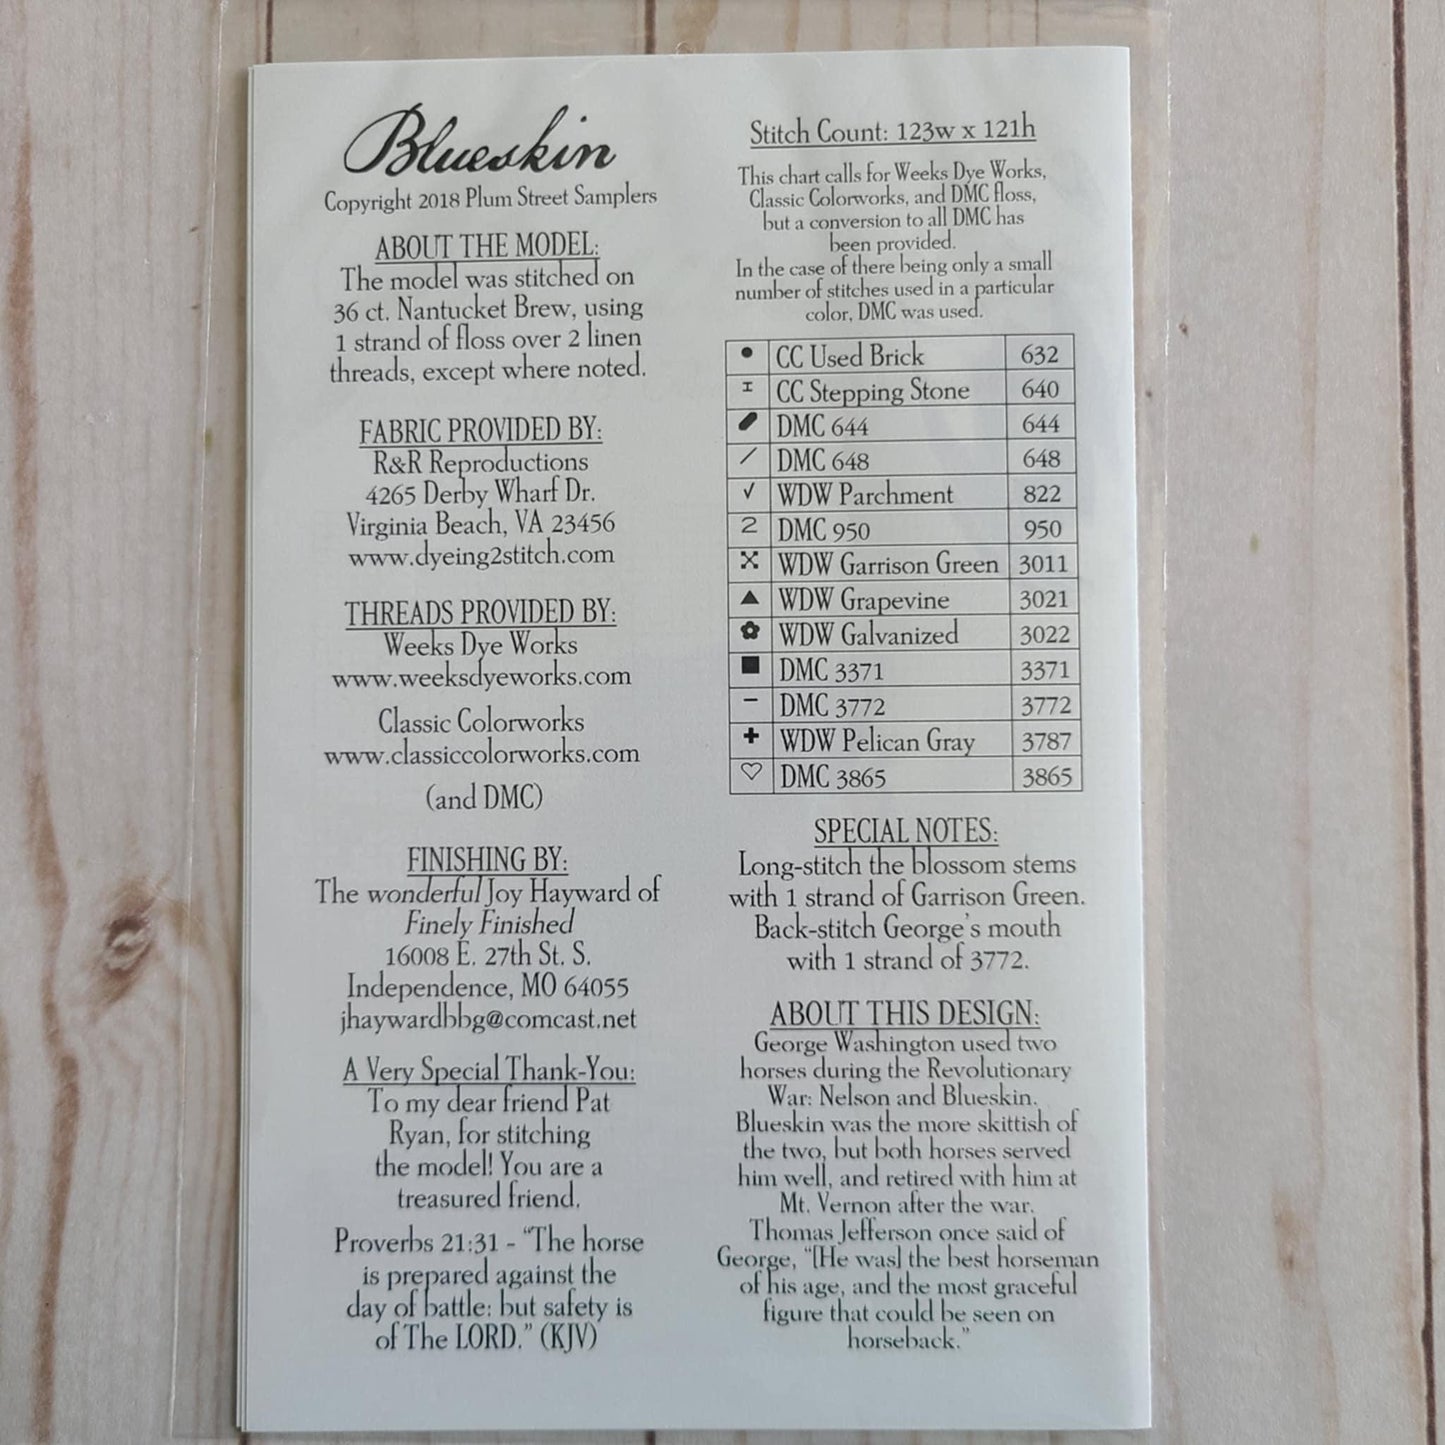 Blueskin
Copyright 2018 Plum Street Samplers
ABOUT THE MODEL:
The model was stitched on
36 ct. Nantucket Brew, using
1 strand of floss over 2 linen
threads, except where noted.
FABRIC PROVIDED BY:
R&R Reproductions
4265 Derby Wharf Dr.
Virginia Beach, VA 23456
www.dyeing2stitch.com
THREADS PROVIDED BY:
Weeks Dye Works
www.weeksdyeworks.com
Classic Colorworks
www.classiccolorworks.com
(and DMC)
FINISHING BY:
The wonderful Joy Hayward of
Finely Finished
16008 E. 27th St. S.
Independence, MO 64055
jhaywardbbg@comcast.net
A Very Special Thank-You:
To my dear friend Pat
Ryan, for stitching
the model! You are a
treasured friend.
Proverbs 21:31 - "The horse
is prepared against the
day of battle: but safety is
of The LORD." (KJV)
Stitch Count: 123w x 121h
This chart calls for Weeks Dye Works,
Classic Colorworks, and DMC floss,
but a conversion to all DMC has
been provided.
In the case of there being only a small
number of stitches used in a particular
color, DMC was used.
CC Used Brick 632
CC Stepping Stone 640
DMC 644 644
DMC 648 648
WDW Parchment 822
2 DMC 950 950
WDW Garrison Green 3011
WDW Grapevine 3021
WDW Galvanized 3022
DMC 3371 3371
DMC 3772 3772
WDW Pelican Gray 3787
DMC 3865 3865
SPECIAL NOTES:
Long-stitch the blossom stems
with 1 strand of Garrison Green.
Back-stitch George's mouth
with 1 strand of 3772.
ABOUT THIS DESIGN:
George Washington used two
horses during the Revolutionary
War: Nelson and Blueskin.
Blueskin was the more skittish of
the two, but both horses served
him well, and retired with him at
Mt. Vernon after the war.
Thomas Jefferson once said of
George, "[He was] the best horseman
of his age, and the most graceful
figure that could be seen on
horseback."